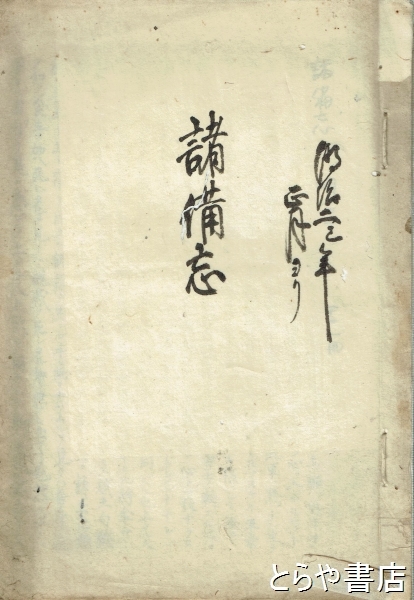 明治二三年
正月ヨリ
諸備忘
とらや書店